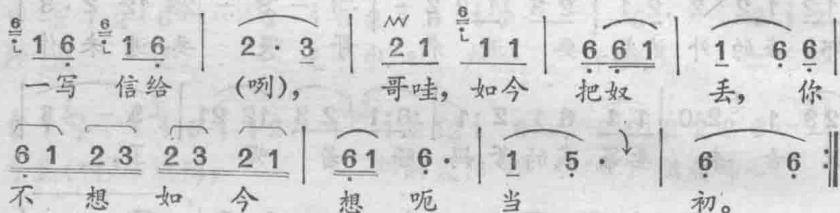 6 1 6 6 1 6 | 2 · 3 | 2 1 6 1 1 | 6 6 1 | 1 6 6
一写 信给 (咧), 哥哇, 如今 把奴 丢, 你
6 1 2 3 2 3 2 1 | 6 1 6 · | 1 5 · | 6 6 :‖
不 想 如 今 想 呃 当 初。